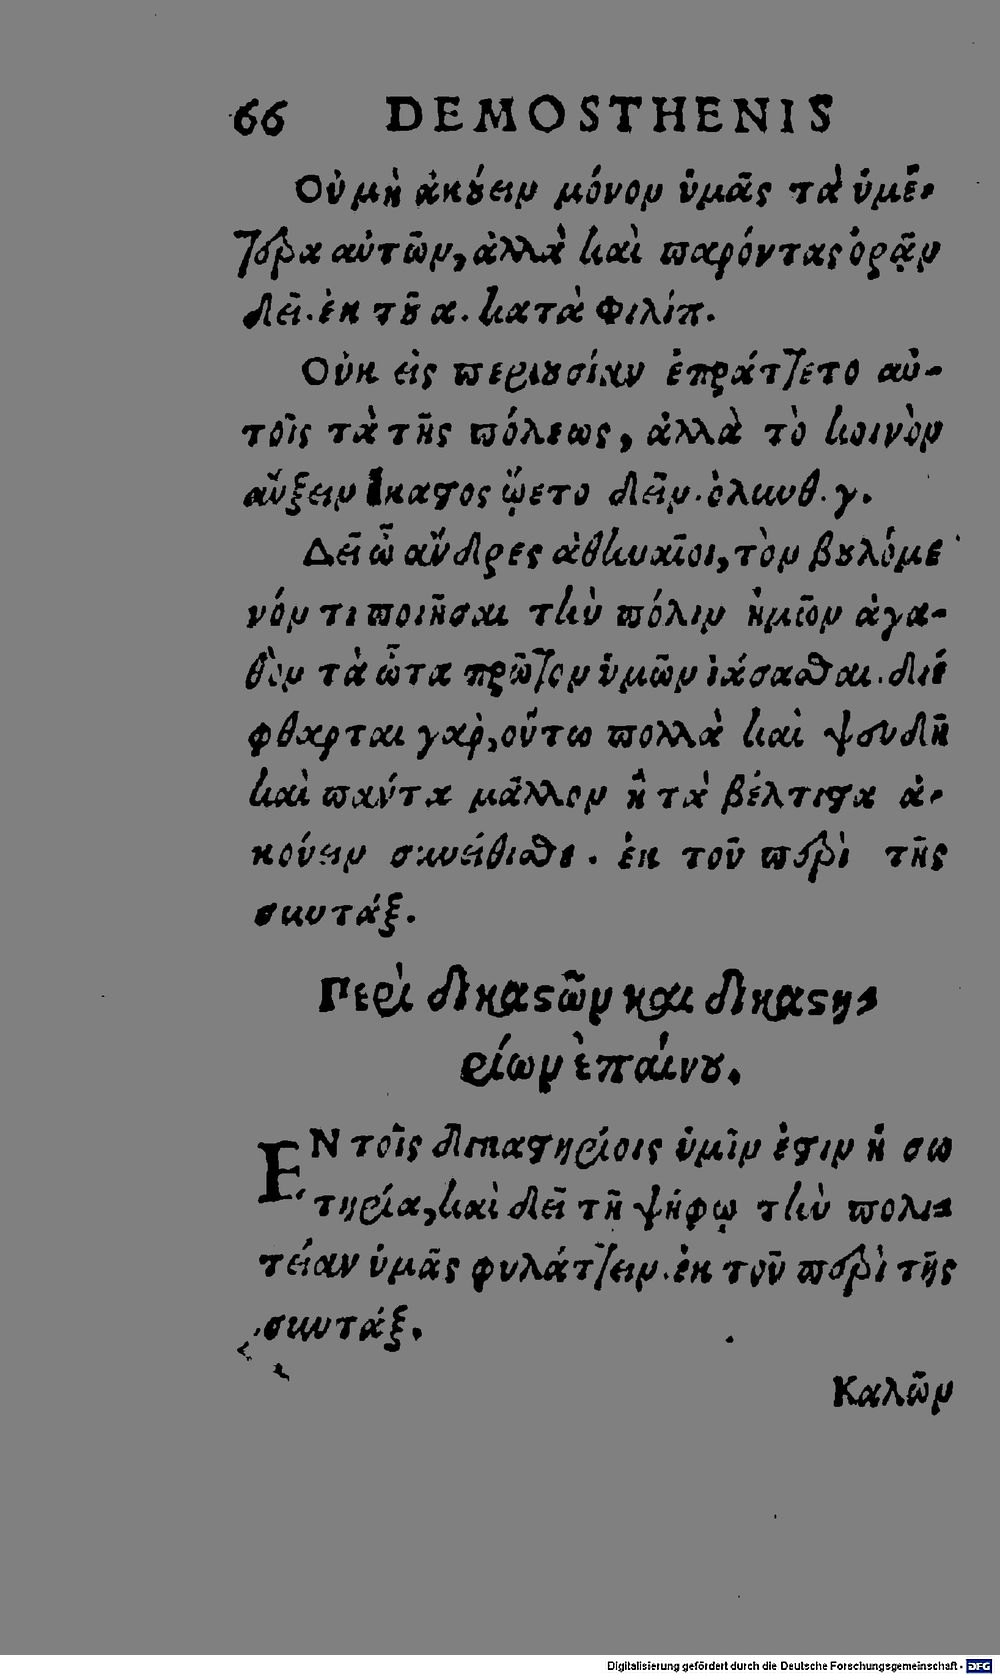 66 DEMOSTHENIS
Οὐ μὴ ἀκούειν μόνον ὑμᾶς τὰ ὑμέ-
τερα αὐτῶν, ἀλλὰ καὶ παρόντας ὁρᾷν
δεῖ. ἐκ τοῦ α. κατὰ Φιλίπ.
Οὐκ εἰς περιουσίαν ἐπράττετο αὐ-
τοῖς τὰ τῆς πόλεως, ἀλλὰ τὸ κοινὸν
αὔξειν ἕκαστος ᾤετο δεῖν. ὀλυνθ. γ.
Δεῖ ὦ ἄνδρες ἀθηναῖοι, τὸν βουλόμε
νόν τι ποιῆσαι τὴν πόλιν ἡμῶν ἀγα-
θὸν τὰ ὦτα πρῶτον ὑμῶν ἰάσασθαι. διέ
φθαρται γαρ, οὕτω πολλὰ καὶ ψευδῆ
καὶ παντα μᾶλλον ἢ τὰ βέλτιστα ἀ-
κούειν συνείθισθε. ἐκ τοῦ περὶ τῆς
συντάξ.
Περὶ δικαστῶν και δικαστη-
ρίων ἐπαίνου.
ΕΝ τοῖς δικαστηρίοις ὑμῖν ἐστιν ἡ σω
τηρία, καὶ δεῖ τῆ ψήφῳ τὴν πολι-
τείαν ὑμᾶς φυλάττειν. ἐκ τοῦ περὶ τῆς
συντάξ.
Καλῶν
Digitalisierung gefördert durch die Deutsche Forschungsgemeinschaft - DFG